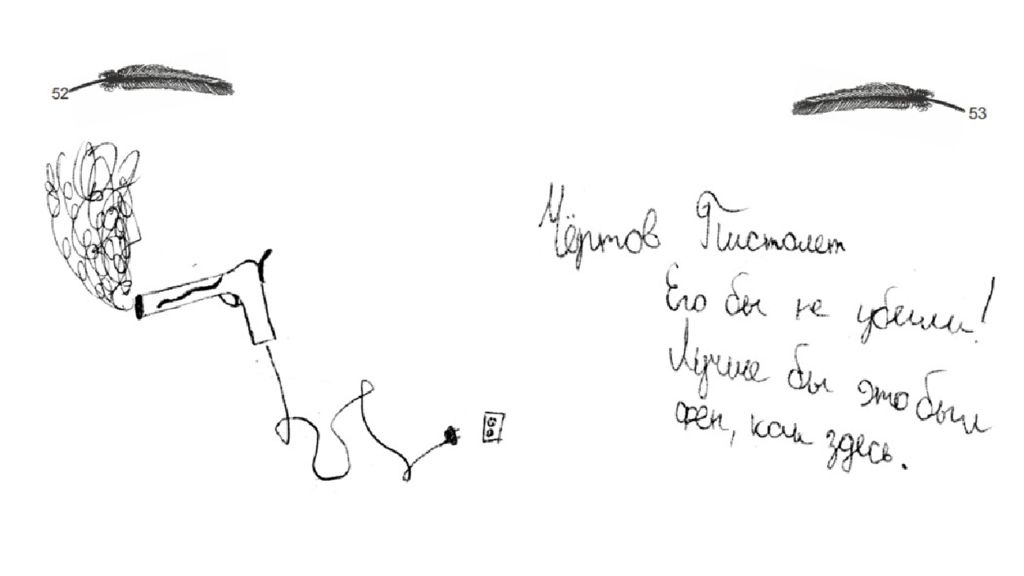 52
53
Чёртов Пистолет
Его бы не убили!
Лучше бы это был
фен, как здесь.